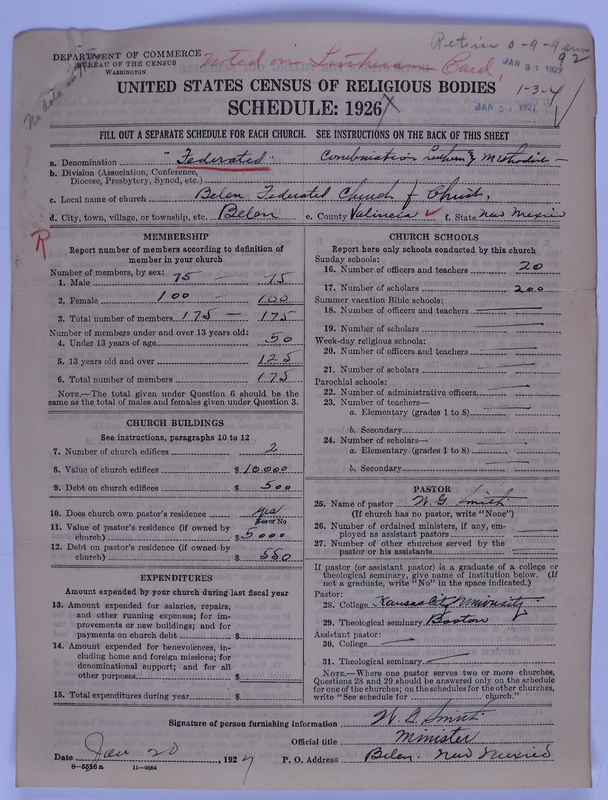 Ret in 0-9-9
92
DEPARTMENT OF COMMERCE
BUREAU OF THE CENSUS
WASHINGTON
Noted on Lutheran Card,
JAN 31 1927
No data on
UNITED STATES CENSUS OF RELIGIOUS BODIES
1-3-4
SCHEDULE: 1926
JAN 31 1927
FILL OUT A SEPARATE SCHEDULE FOR EACH CHURCH. SEE INSTRUCTIONS ON THE BACK OF THIS SHEET
a. Denomination "Federated" Combination Lutheran & Methodist
b. Division (Association, Conference,
Diocese, Presbytery, Synod, etc.)
c. Local name of church Belen Federated Church of Christ.
d. City, town, village, or township, etc. Belen e. County Valincia f. State New Mexico
R
MEMBERSHIP
Report number of members according to definition of
member in your church
Number of members, by sex:
1. Male 75 — 75
2. Female 100 — 100
3. Total number of members 175 — 175
Number of members under and over 13 years old:
4. Under 13 years of age 50
5. 13 years old and over 125
6. Total number of members 175
NOTE.—The total given under Question 6 should be
same as the total of males and females given under Question 3.
CHURCH BUILDINGS
See instructions, paragraphs 10 to 12
7. Number of church edifices 2
8. Value of church edifices $10.000
9. Debt on church edifices $ 500
10. Does church own pastor's residence? yes
Yes or No
11. Value of pastor's residence (if owned by
church) $5000
12. Debt on pastor's residence (if owned by
church) $ 550
EXPENDITURES
Amount expended by your church during last fiscal year
13. Amount expended for salaries, repairs,
and other running expenses; for im-
provements or new buildings; and for
payments on church debt $
14. Amount expended for benevolences, in-
cluding home and foreign missions; for
denominational support; and for all
other purposes $
15. Total expenditures during year $
CHURCH SCHOOLS
Report here only schools conducted by this church
Sunday schools:
16. Number of officers and teachers 20
17. Number of scholars 200
Summer vacation Bible schools:
18. Number of officers and teachers
19. Number of scholars
Week-day religious schools:
20. Number of officers and teachers
21. Number of scholars
Parochial schools:
22. Number of administrative officers
23. Number of teachers—
a. Elementary (grades 1 to 8)
b. Secondary
24. Number of scholars—
a. Elementary (grades 1 to 8)
b. Secondary
PASTOR
25. Name of pastor W. G. Smith
(If church has no pastor, write "None")
26. Number of ordained ministers, if any, em-
ployed as assistant pastors
27. Number of other churches served by the
pastor or his assistants
If pastor (or assistant pastor) is a graduate of a college or
theological seminary, give name of institution below. (If
not a graduate, write "No" in the space indicated.)
Pastor:
28. College Kansas City University
29. Theological seminary Boston
Assistant pastor:
30. College
31. Theological seminary
NOTE.—Where one pastor serves two or more churches,
Questions 28 and 29 should be answered only on the schedule
for one of the churches; on the schedules for the other churches,
write "See schedule for church."
Signature of person furnishing information W. G. Smith
Official title Minister
Date Jan 20, 1927 P. O. Address Belen. New Mexico
8-5518a 11-9064